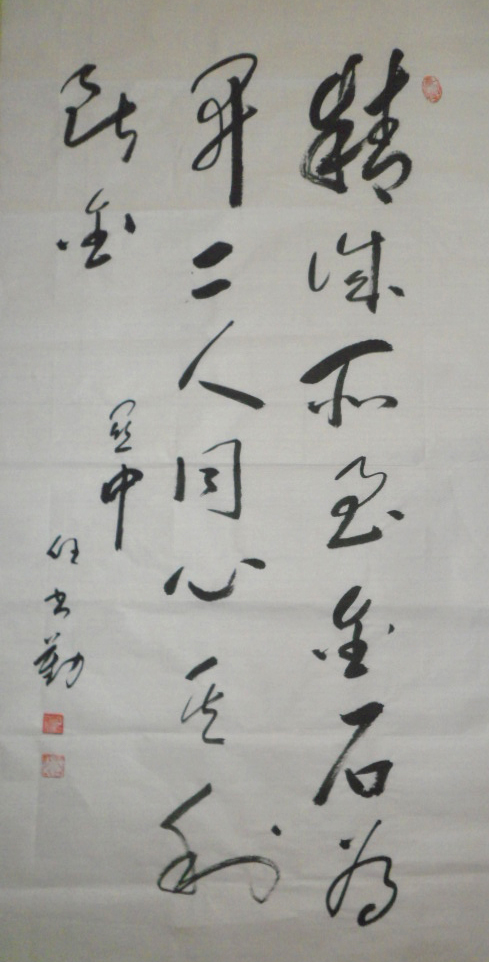 精诚所至金石为
开二人同心其利
断金
关中
任书勤